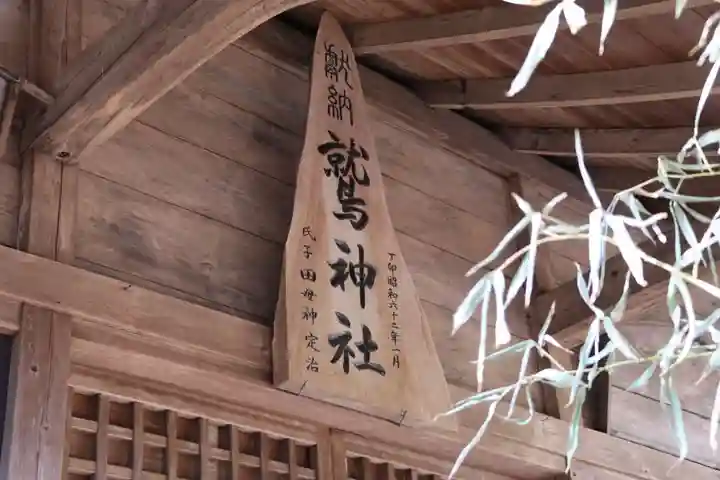 献納
鷲神社
丁卯昭和六十二年一月
氏子 田母神定治